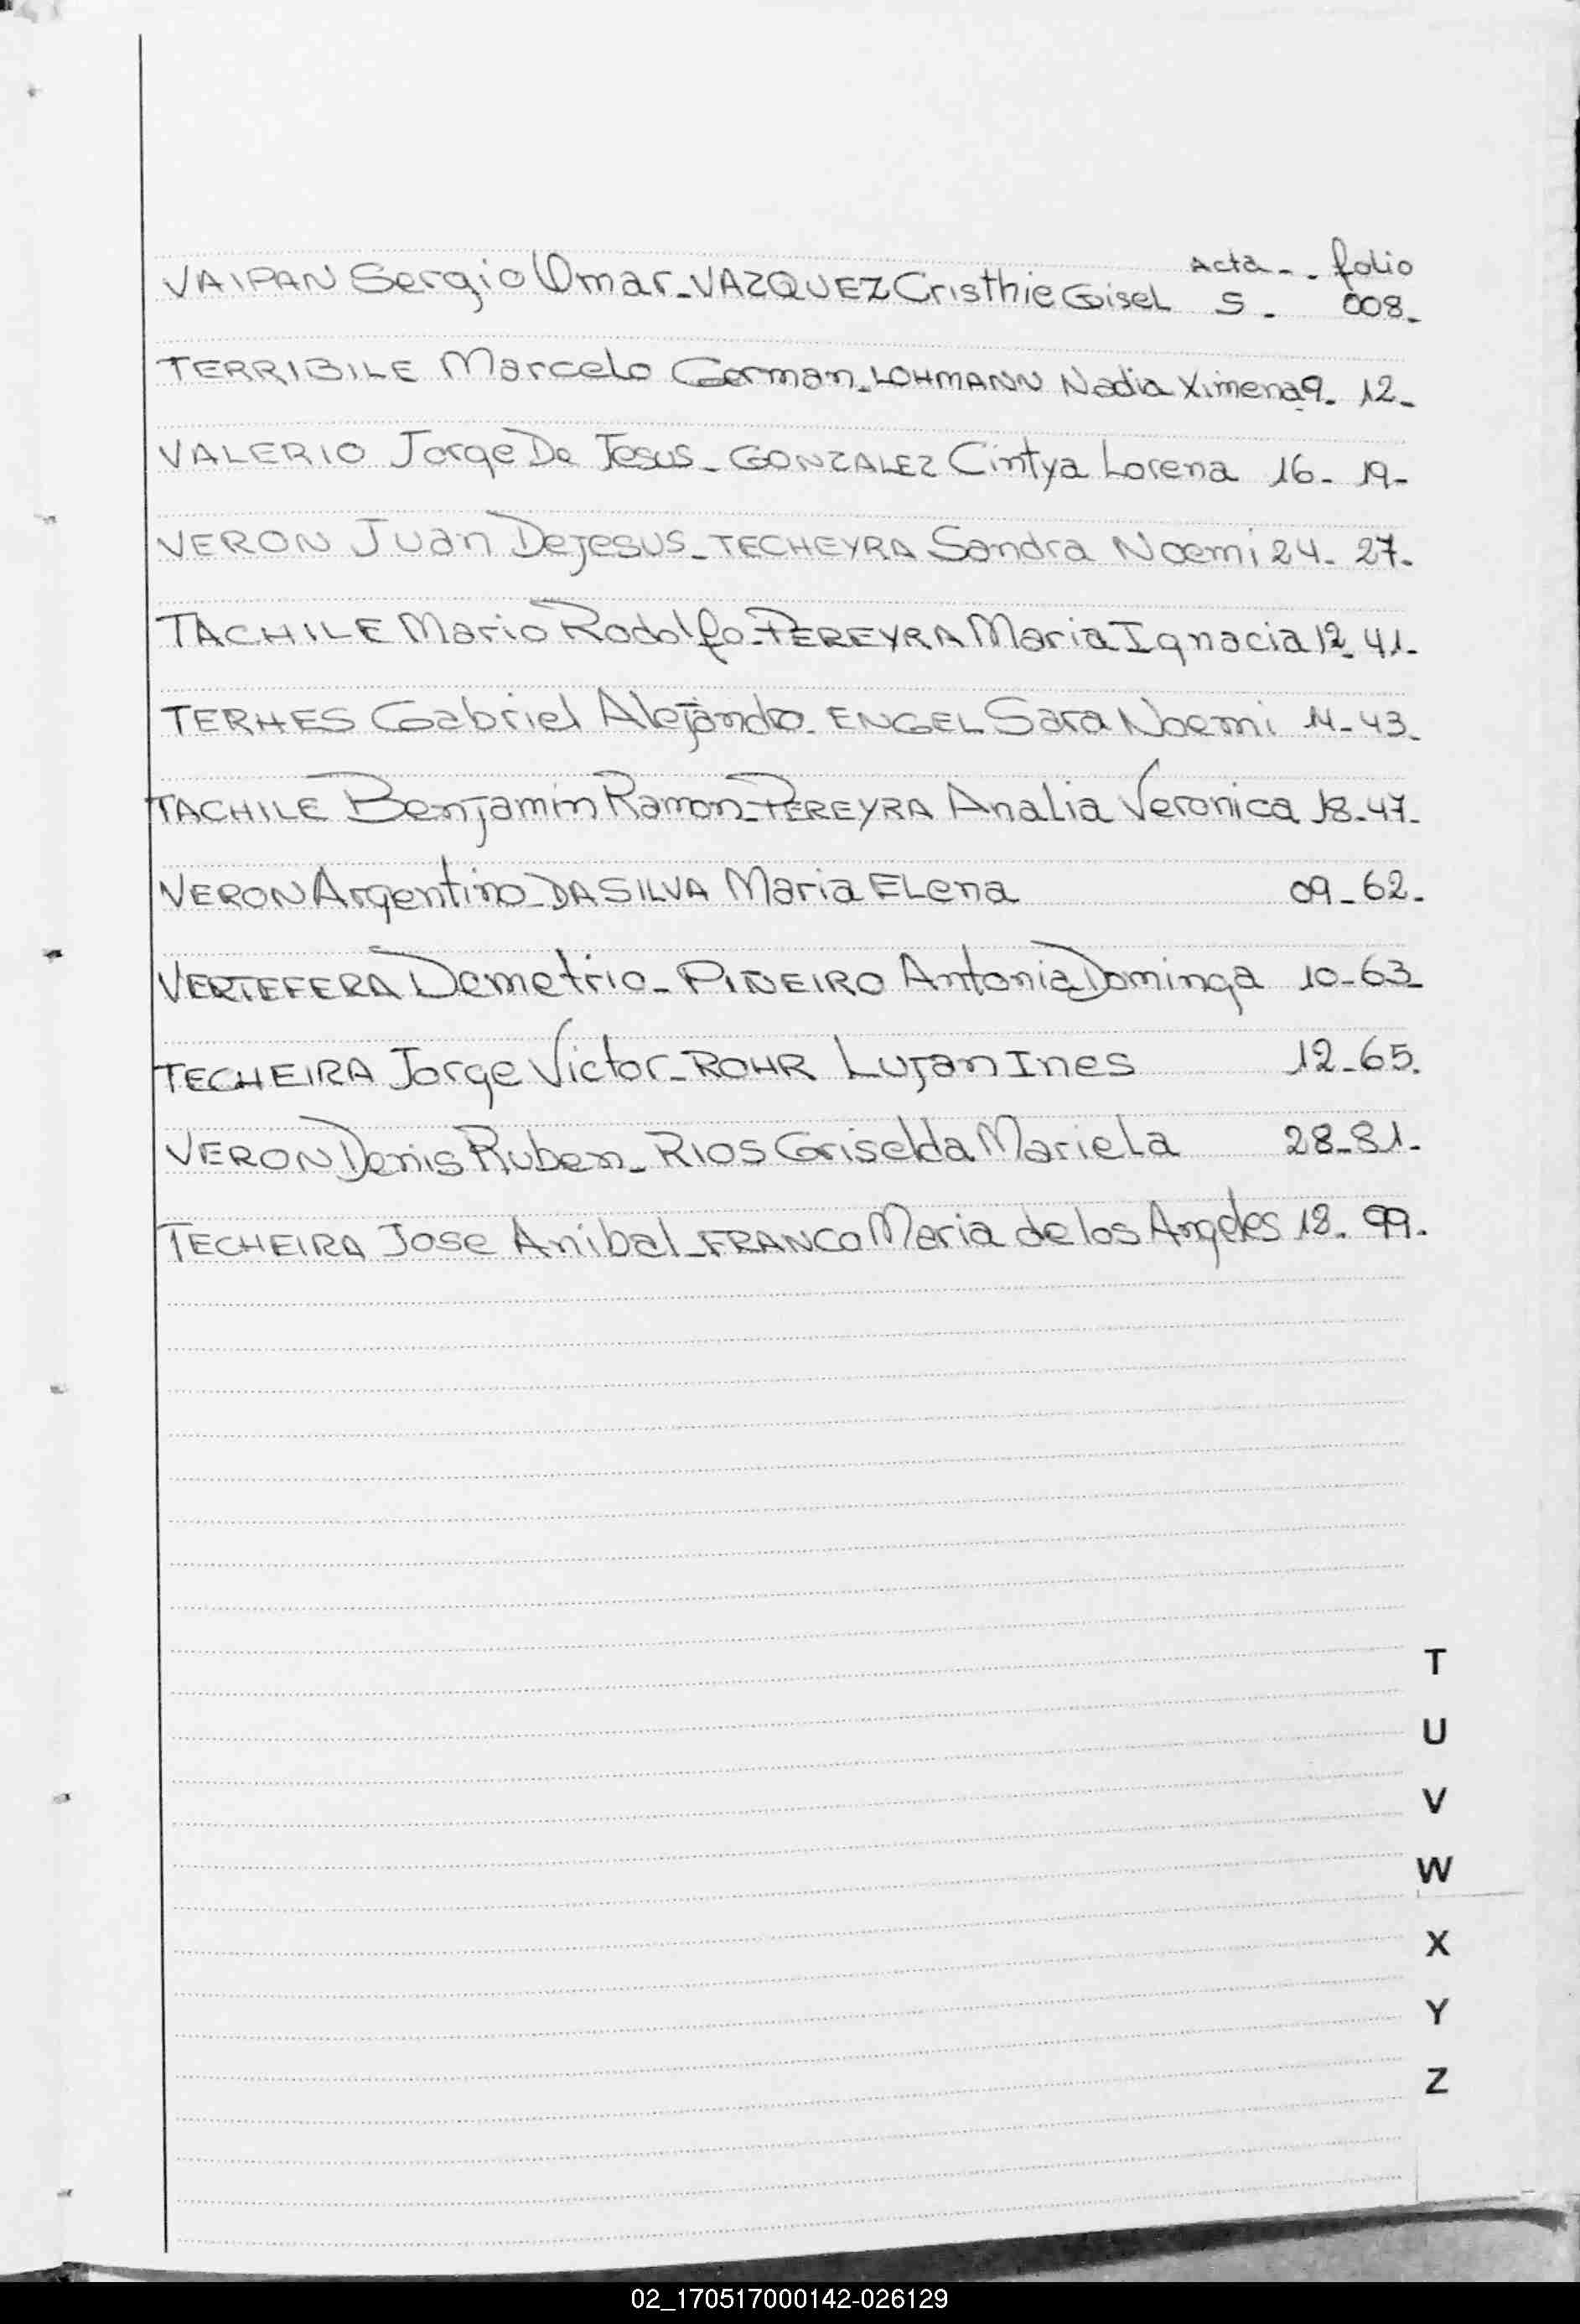 Acta - . folio
VAIPAN Sergio Omar - VAZQUEZ Cristhie Gisel 5. 008.
TERRIBILE Marcelo German - LOHMANN Nadia Ximena 9. 12-
VALERIO Jorge De Jesus - GONZALEZ Cintya Lorena 16- 19-
VERON Juan DeJesus - TECHEYRA Sandra Noemi 24. 27.
TACHILE Mario Rodolfo - PEREYRA Maria Ignacia 12. 41-
TERHES Gabriel Alejandro - ENGEL Sara Noemi 14- 43-
TACHILE Benjamin Ramon - PEREYRA Analia Veronica 18-47-
VERON Argentino - DA SILVA Maria ELena 09-62-
VERTEFERA Demetrio - PIÑEIRO Antonia Dominga 10-63-
TECHEIRA Jorge Victor - ROHR Lujan Ines 12-65.
VERON Denis Ruben - RIOS Griselda MarieLa 28-81-
TECHEIRA Jose Anibal - FRANCO Maria de los Angeles 18. 99.
T
U
V
W
X
Y
Z
02_170517000142-026129